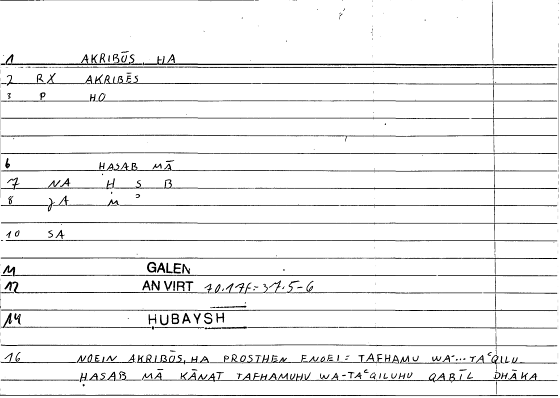 1 AKRIBŌS, HA
2 RX AKRIBĒS
3 P HO
6 ḤASAB MĀ
7 NA Ḥ S B
8 JA M ʾ
10 SA
11 GALEN
12 AN VIRT 70.17f = 37.5-6
14 ḤUBAYSH
16 NOEIN AKRIBŌS, HA PROSTHEN ENOEI = TAFHAMU WA-...TAʿQILU
ḤASAB MĀ KĀNAT TAFHAMUHU WA-TAʿQILUHU QABĪL DHĀKA